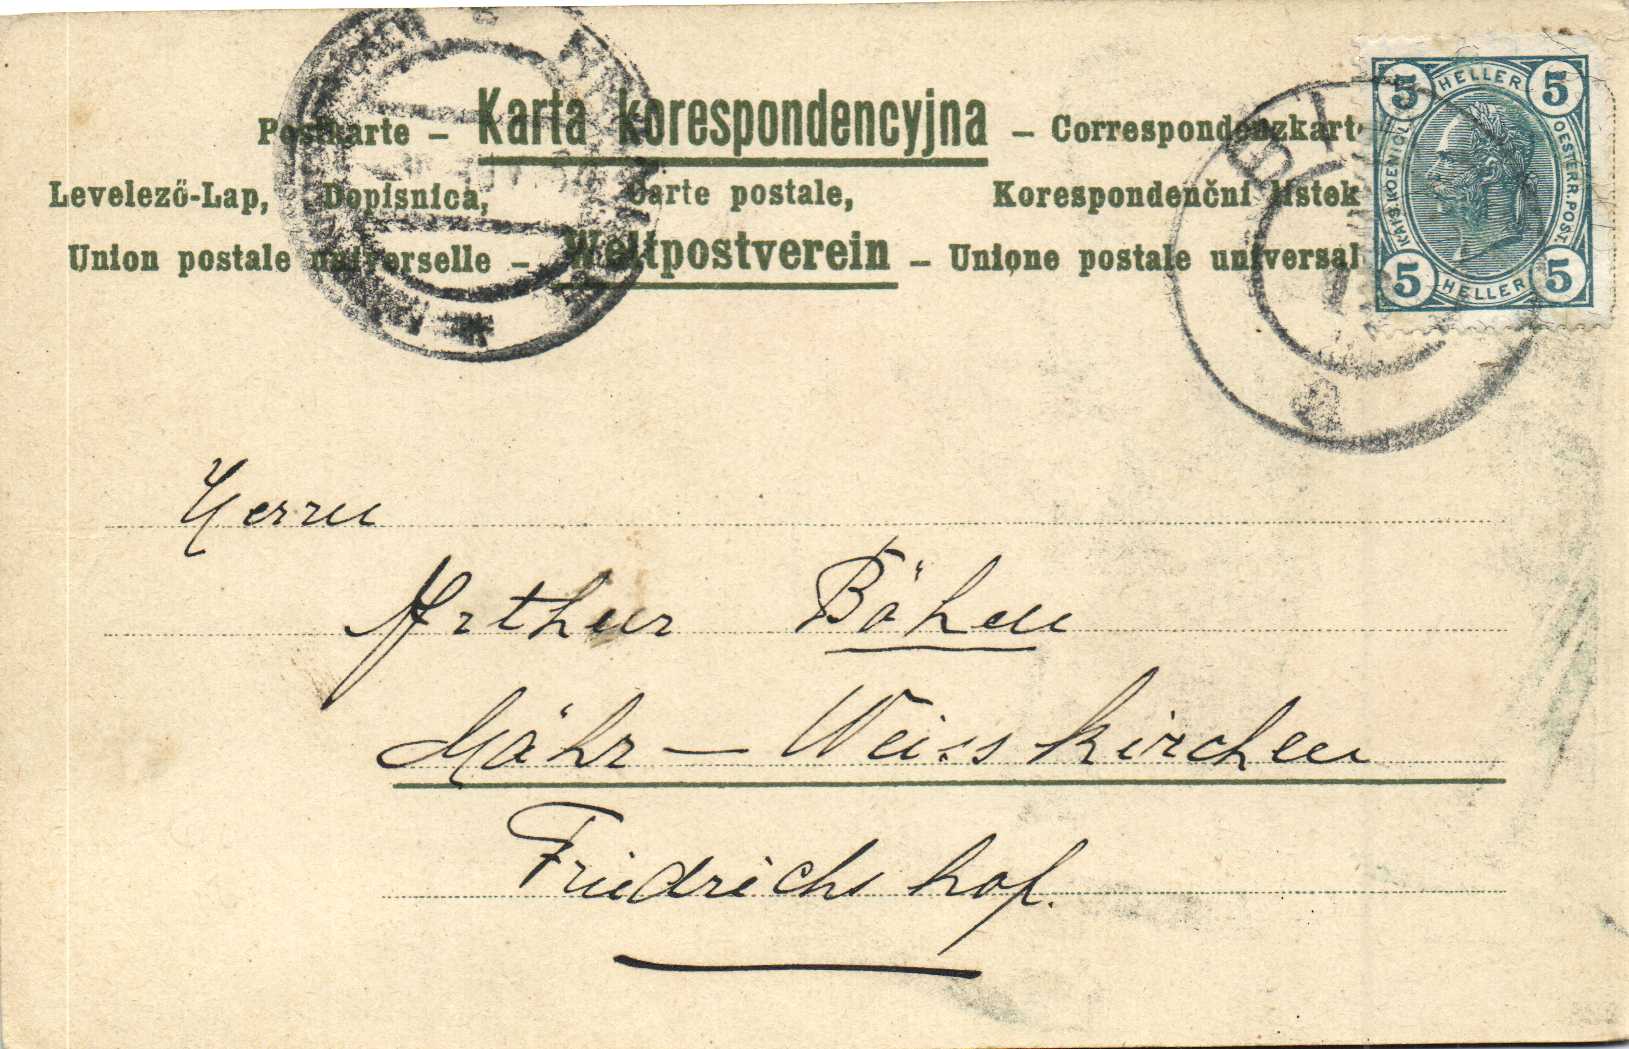 Postkarte – Karta korespondencyjna – Correspondenzkart
Levelező-Lap, Dopisnica, Carte postale, Korespondenční lístek
Union postale universelle – Weltpostverein – Unione postale universal
5 HELLER 5
KAIS. KOENIGL. OESTERR. POST.
5 HELLER 5
Herrn
Arthur Böhm
Mähr – Weisskirchen
Friedrichshof.